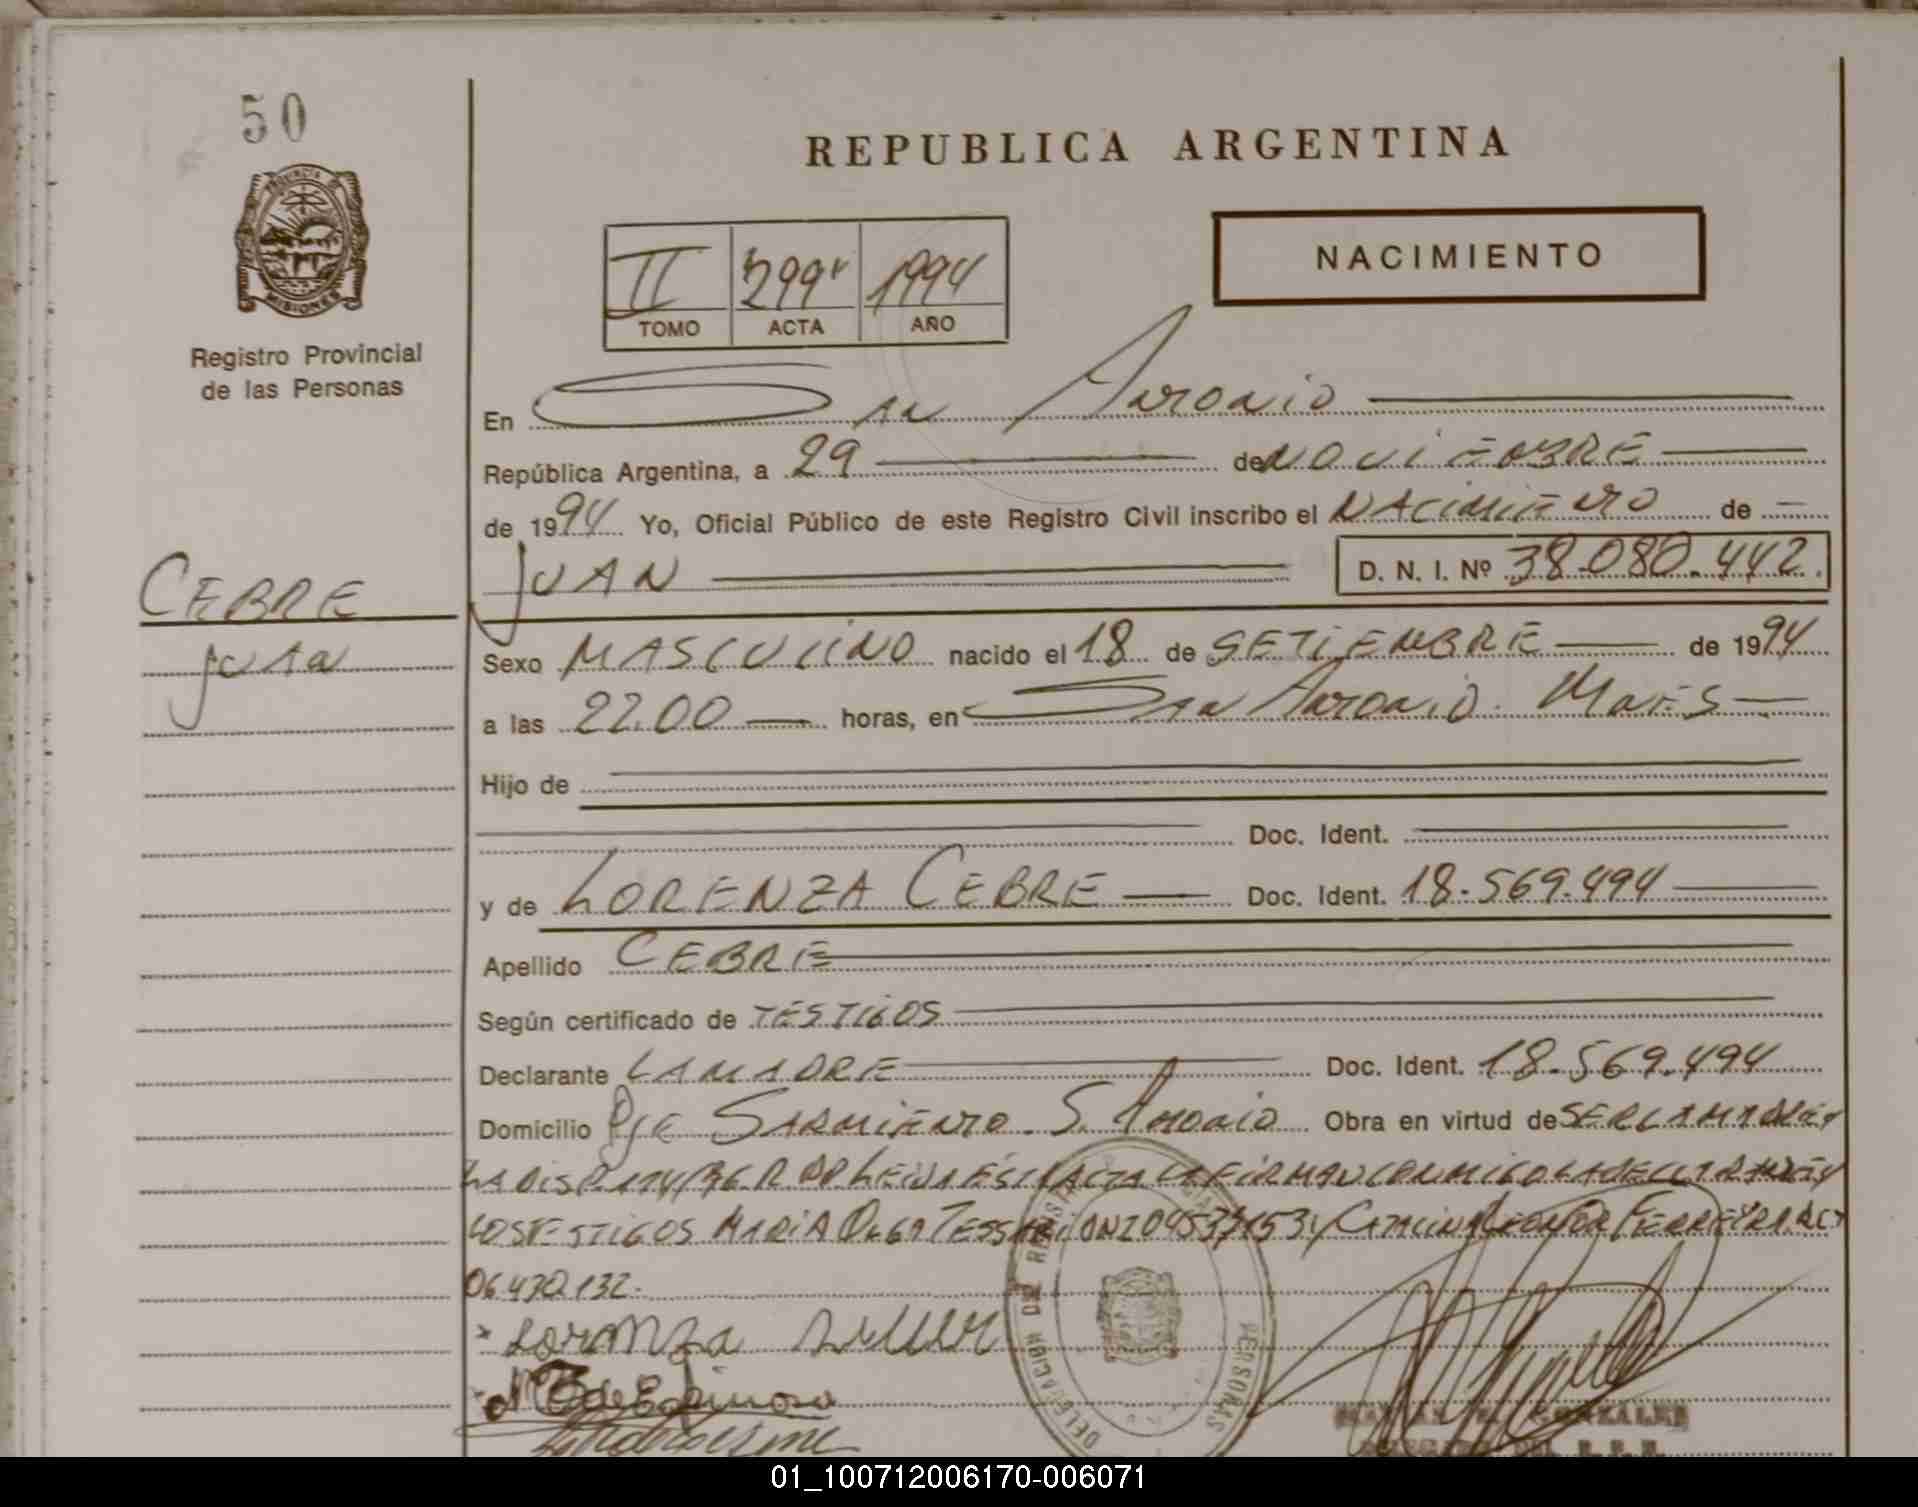 50
REPUBLICA ARGENTINA
NACIMIENTO
II 299 1994
TOMO ACTA AÑO
PROVINCIA DE MISIONES
Registro Provincial
de las Personas
En San Antonio
República Argentina, a 29 de NOVIEMBRE
de 1994 Yo, Oficial Público de este Registro Civil inscribo el NACIMIENTO de
JUAN D. N. I. Nº 38.080.442.
CEBRE
JUAN
Sexo MASCULINO nacido el 18 de SETIEMBRE de 1994
a las 22.00 horas, en San Antonio
Hijo de
Doc. Ident.
y de LORENZA CEBRE Doc. Ident. 18.569.494
Apellido CEBRE
Según certificado de TESTIGOS
Declarante LA MADRE Doc. Ident. 18.569.494
Domicilio Pje SARMIENTO S. Antonio Obra en virtud de SER LA MADRE Y
LA DISP. LEIDA ESTA ACTA LA FIRMAN CONMIGO LA DECLARANTE Y
LOS TESTIGOS MARIA OLGA CATALINA LEONOR FERREYRA
06.430.132.
Loranza
DELEGACION DE PERSONAS
GONZALEZ
01_100712006170-006071